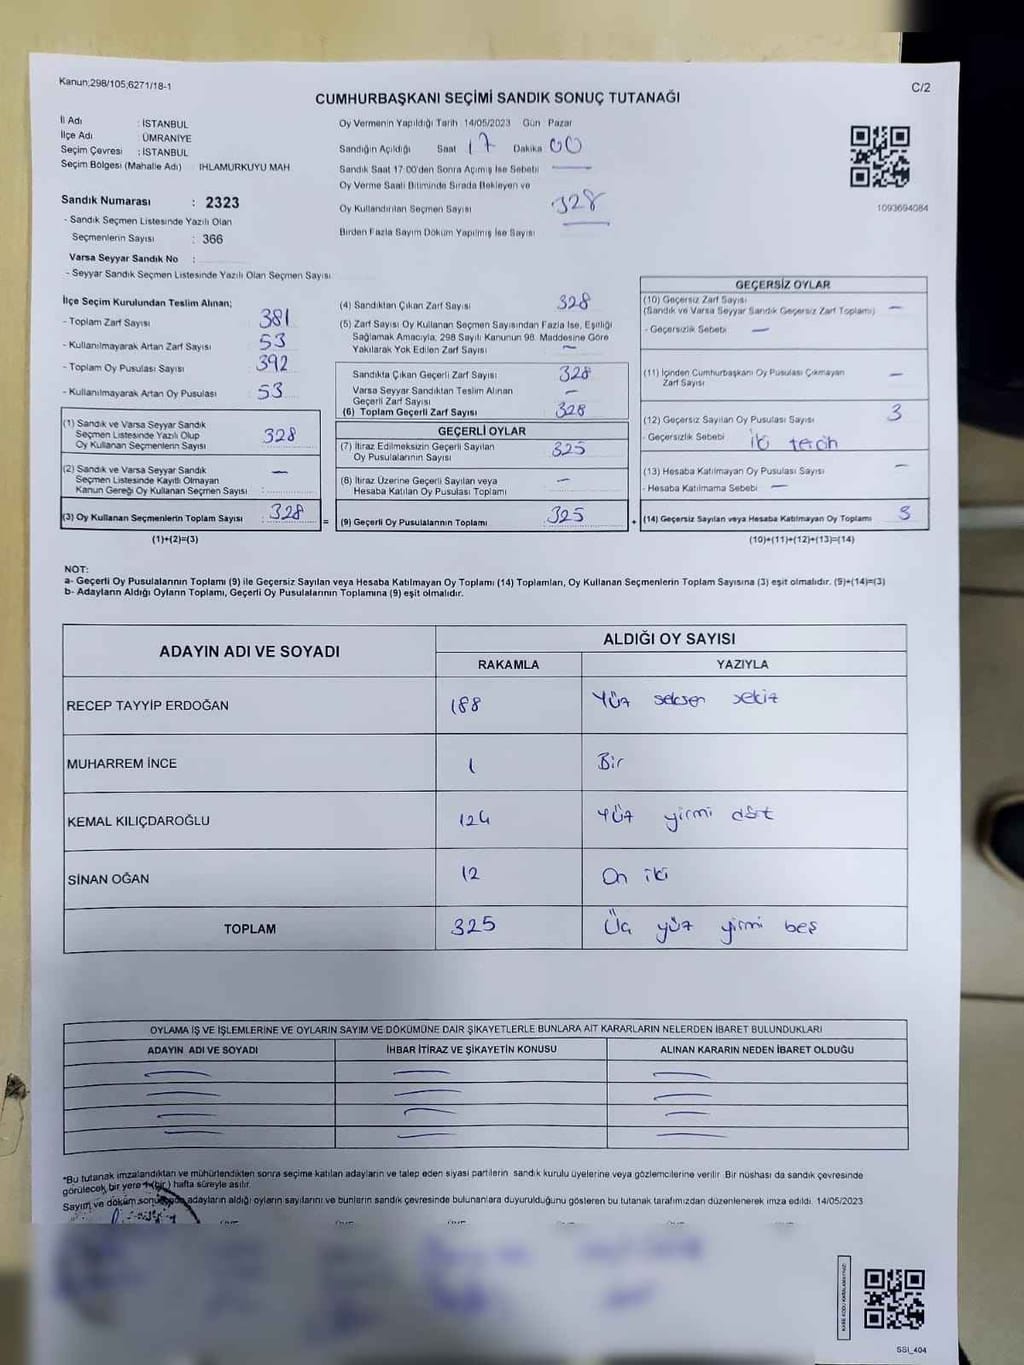 Kanun;298/105;6271/18-1
C/2
CUMHURBAŞKANI SEÇİMİ SANDIK SONUÇ TUTANAĞI
İl Adı : İSTANBUL
İlçe Adı : ÜMRANİYE
Seçim Çevresi : İSTANBUL
Seçim Bölgesi (Mahalle Adı) IHLAMURKUYU MAH
Sandık Numarası : 2323
- Sandık Seçmen Listesinde Yazılı Olan
Seçmenlerin Sayısı : 366
Varsa Seyyar Sandık No :
- Seyyar Sandık Seçmen Listesinde Yazılı Olan Seçmen Sayısı
Oy Vermenin Yapıldığı Tarih 14/05/2023 Gün Pazar
Sandığın Açıldığı Saat 17 Dakika 00
Sandık Saat 17:00'den Sonra Açımış İse Sebebi —
Oy Verme Saati Bitiminde Sırada Bekleyen ve
Oy Kullandırılan Seçmen Sayısı 328
Birden Fazla Sayım Döküm Yapılmış İse Sayısı
1093694084
İlçe Seçim Kurulundan Teslim Alınan;
- Toplam Zarf Sayısı 381
- Kullanılmayarak Artan Zarf Sayısı 53
- Toplam Oy Pusulası Sayısı 392
- Kullanılmayarak Artan Oy Pusulası 53
(1) Sandık ve Varsa Seyyar Sandık
Seçmen Listesinde Yazılı Olup
Oy Kullanan Seçmenlerin Sayısı 328
(2) Sandık ve Varsa Seyyar Sandık
Seçmen Listesinde Kayıtlı Olmayan
Kanun Gereği Oy Kullanan Seçmen Sayısı —
(3) Oy Kullanan Seçmenlerin Toplam Sayısı 328 =
(1)+(2)=(3)
(4) Sandıktan Çıkan Zarf Sayısı 328
(5) Zarf Sayısı Oy Kullanan Seçmen Sayısından Fazla İse, Eşitliği
Sağlamak Amacıyla, 298 Sayılı Kanunun 98. Maddesine Göre
Yakılarak Yok Edilen Zarf Sayısı —
Sandıkta Çıkan Geçerli Zarf Sayısı 328
Varsa Seyyar Sandıktan Teslim Alınan
Geçerli Zarf Sayısı —
(6) Toplam Geçerli Zarf Sayısı 328
GEÇERLİ OYLAR
(7) İtiraz Edilmeksizin Geçerli Sayılan
Oy Pusulalarının Sayısı 325
(8) İtiraz Üzerine Geçerli Sayılan veya
Hesaba Katılan Oy Pusulası Toplamı —
(9) Geçerli Oy Pusulalarının Toplamı 325 +
GEÇERSİZ OYLAR
(10) Geçersiz Zarf Sayısı
(Sandık ve Varsa Seyyar Sandık Geçersiz Zarf Toplamı) —
- Geçersizlik Sebebi —
(11) İçinden Cumhurbaşkanı Oy Pusulası Çıkmayan
Zarf Sayısı —
(12) Geçersiz Sayılan Oy Pusulası Sayısı 3
- Geçersizlik Sebebi iki tercih
(13) Hesaba Katılmayan Oy Pusulası Sayısı —
- Hesaba Katılmama Sebebi —
(14) Geçersiz Sayılan veya Hesaba Katılmayan Oy Toplamı 3
(10)+(11)+(12)+(13)=(14)
NOT:
a- Geçerli Oy Pusulalarının Toplamı (9) ile Geçersiz Sayılan veya Hesaba Katılmayan Oy Toplamı (14) Toplamları, Oy Kullanan Seçmenlerin Toplam Sayısına (3) eşit olmalıdır. (9)+(14)=(3)
b- Adayların Aldığı Oyların Toplamı, Geçerli Oy Pusulalarının Toplamına (9) eşit olmalıdır.
ADAYIN ADI VE SOYADI
ALDIĞI OY SAYISI
RAKAMLA YAZIYLA
RECEP TAYYİP ERDOĞAN 188 Yüz seksen sekiz
MUHARREM İNCE 1 Bir
KEMAL KILIÇDAROĞLU 124 Yüz yirmi dört
SİNAN OĞAN 12 On iki
TOPLAM 325 Üç yüz yirmi beş
OYLAMA İŞ VE İŞLEMLERİNE VE OYLARIN SAYIM VE DÖKÜMÜNE DAİR ŞİKAYETLERLE BUNLARA AİT KARARLARIN NELERDEN İBARET BULUNDUKLARI
ADAYIN ADI VE SOYADI İHBAR İTİRAZ VE ŞİKAYETİN KONUSU ALINAN KARARIN NEDEN İBARET OLDUĞU
— — —
— — —
— — —
— — —
"Bu tutanak imzalandıktan ve mühürlendikten sonra seçime katılan adayların ve talep eden siyasi partilerin sandık kurulu üyelerine veya gözlemcilerine verilir. Bir nüshası da sandık çevresinde
görülecek bir yere 1 (bir) hafta süreyle asılır.
Sayım ve döküm adayların aldığı oyların sayılarını ve bunların sandık çevresinde bulunanlara duyurulduğunu gösteren bu tutanak tarafımızdan düzenlenerek imza edildi. 14/05/2023
SSI_404